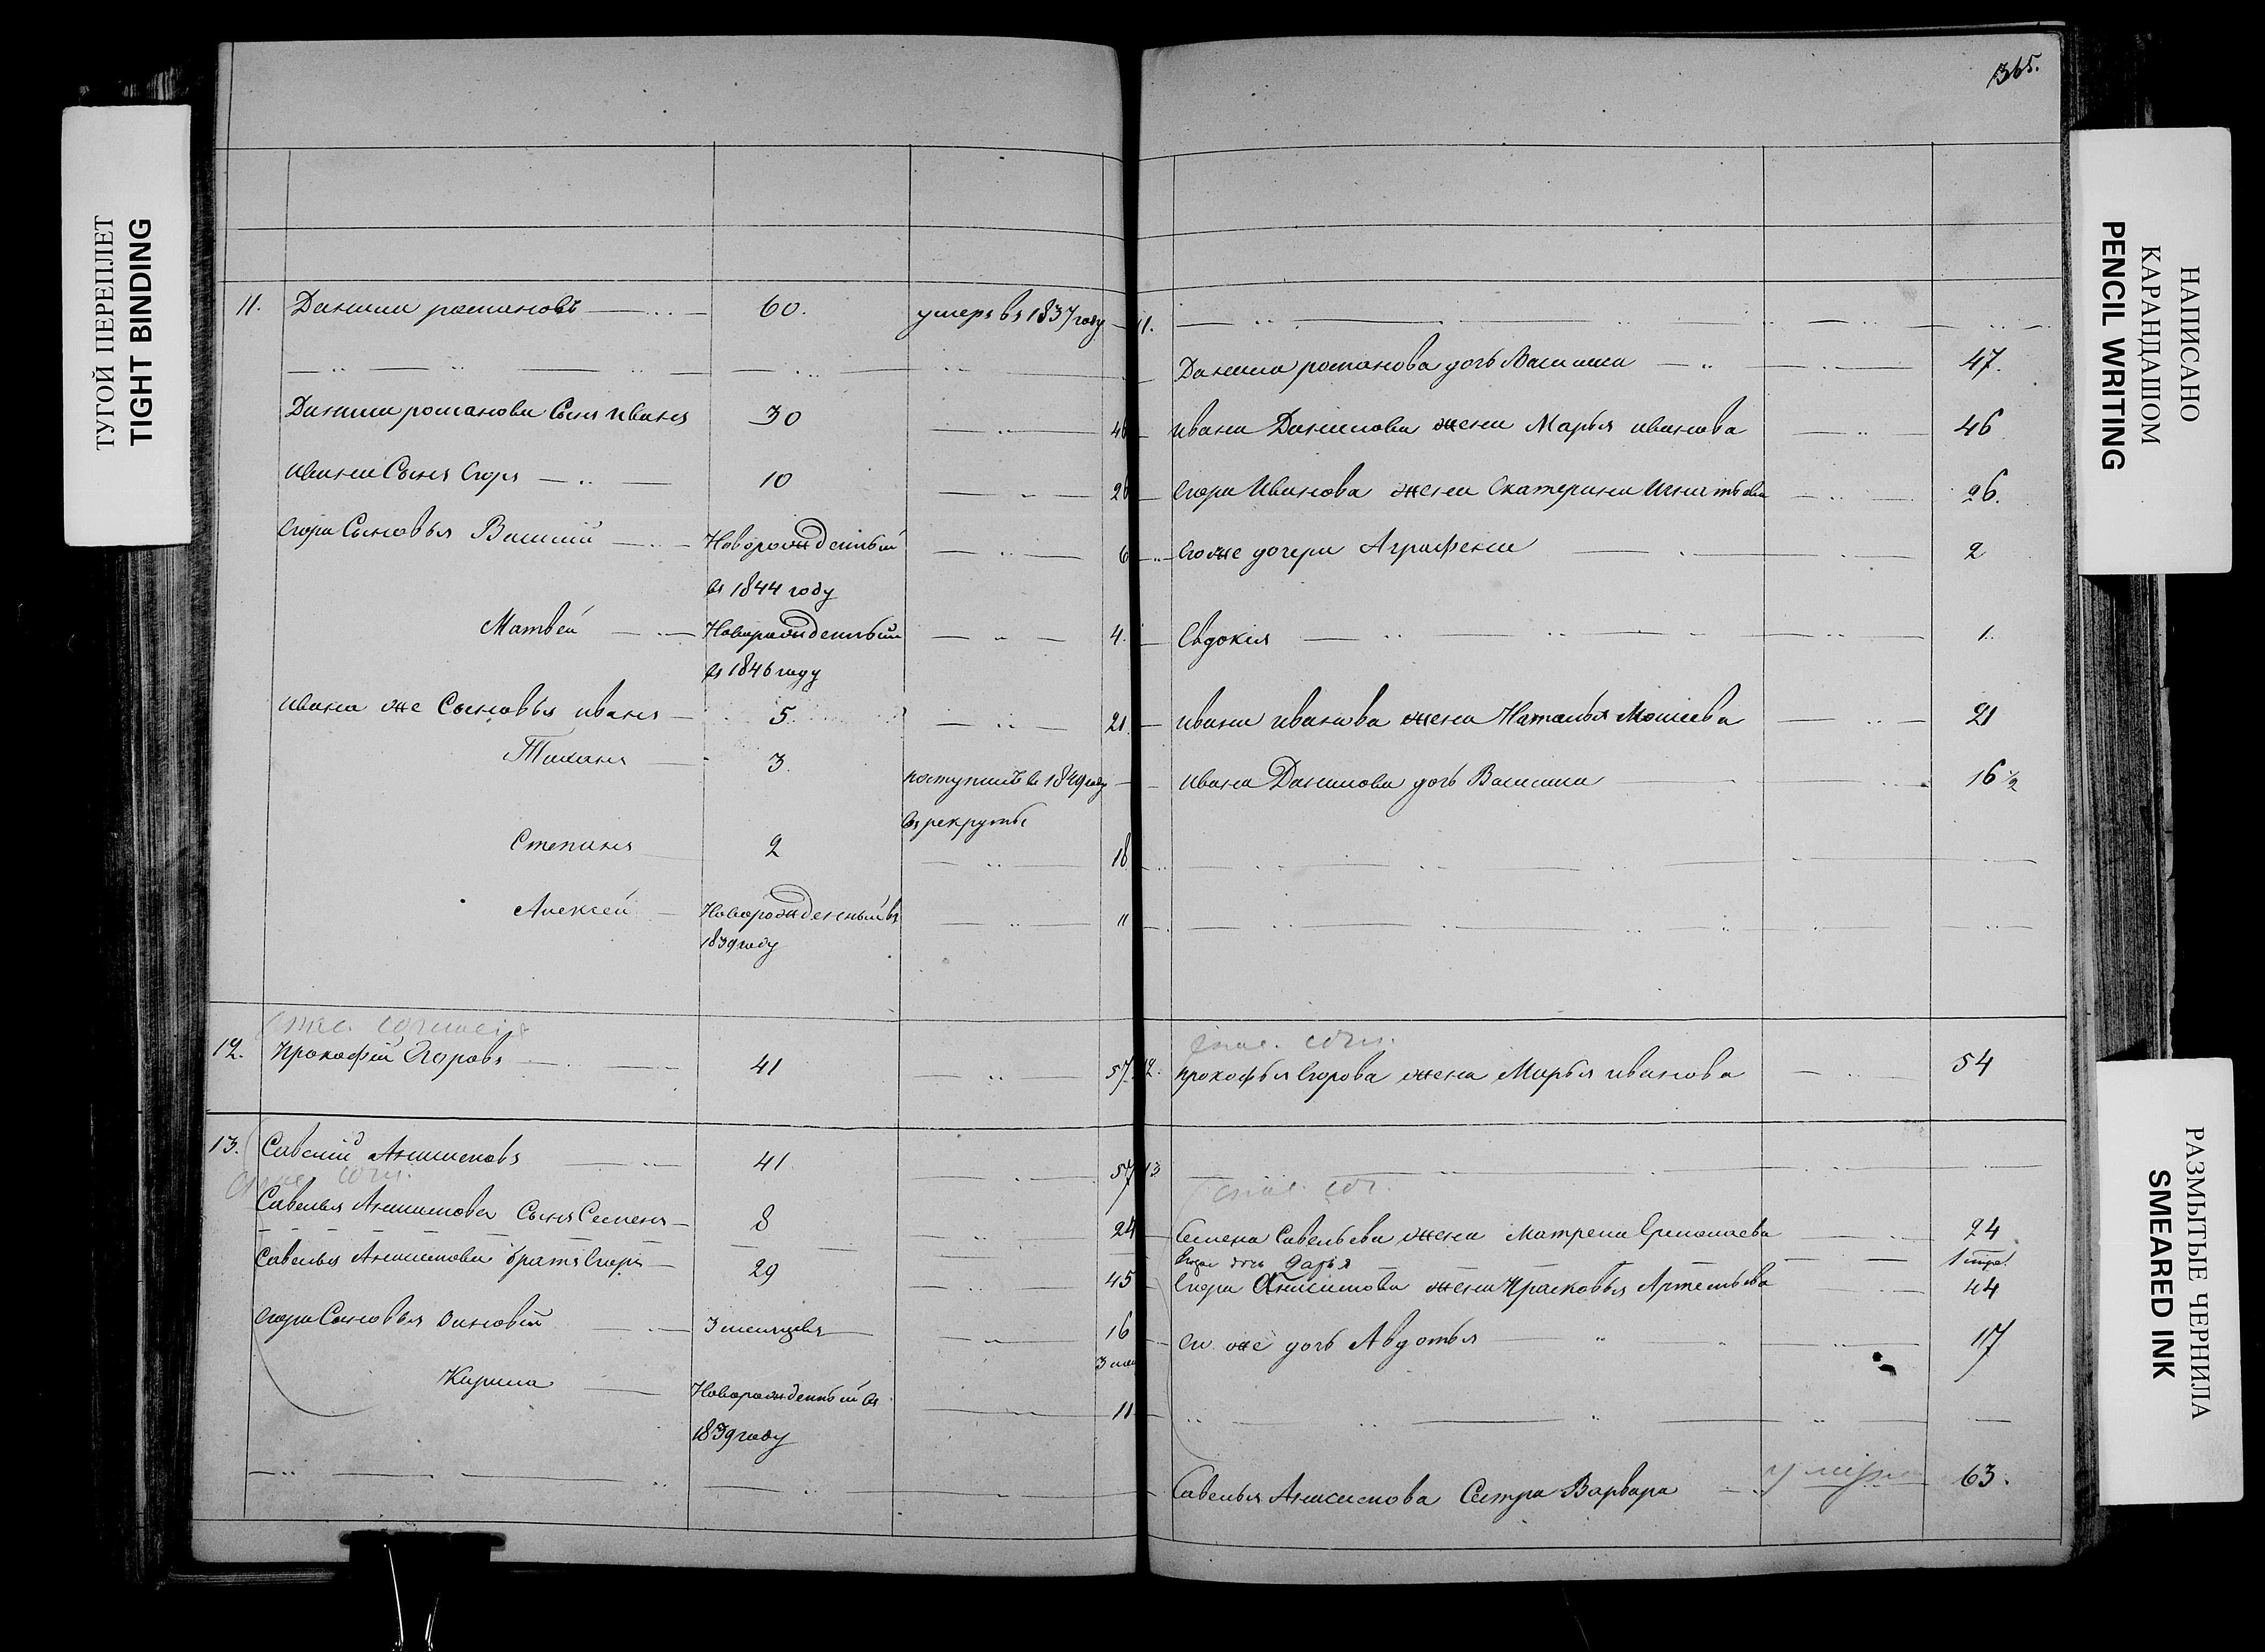 365.
ТУГОЙ ПЕРЕПЛЕТ
TIGHT BINDING
НАПИСАНО
КАРАНДАШОМ
PENCIL WRITING
РАЗМЫТЫЕ ЧЕРНИЛА
SMEARED INK
11. Данила романовъ 60. умеръ въ 1837 году
Данилы романова Сынъ иванъ 30 46
ивана Сынъ Егоръ 10 26
Егора Сыновья Василій Новорожденный 6
въ 1844 году
Матвей Новорожденный 4.
въ 1846 году
ивана же Сыновья иванъ 5. 21.
Тиханъ 3. поступилъ в 1849 году
въ рекруты
Степанъ 2 18
Алексей Новорожденный въ 11
1839 году
12. Прокофій Егоровъ 41 57
13. Савелій Анисимовъ 41 57
Савелья Анисимова Сынъ Семенъ 8 24
Савелья Анисимова братъ Егоръ 29 45
Егора Сыновья Зиновей 3 месяцевъ 16
3 мес
Кирила Новорожденный въ 11
1839 году
11.
Данила романова дочь Василиса 47.
ивана Данилова жена Марья иванова 46
Егора Иванова жена Екатерина Игнатьева 26.
Егоже дочери Аграфена 2
Евдокія 1.
ивана иванова жена Наталья Мосеева 21
ивана Данилова дочь Василиса 16 1/2
12. прокофья Егорова жена Марья иванова 54
13
Семена Савельева жена Матрена Ермолаева 24
дочь Дарья
Егора Анисимова жена Прасковья Артемьева 44
Ег. же дочь Авдотья 17
Савелья Анисимова Сестра Варвара умерла 63.